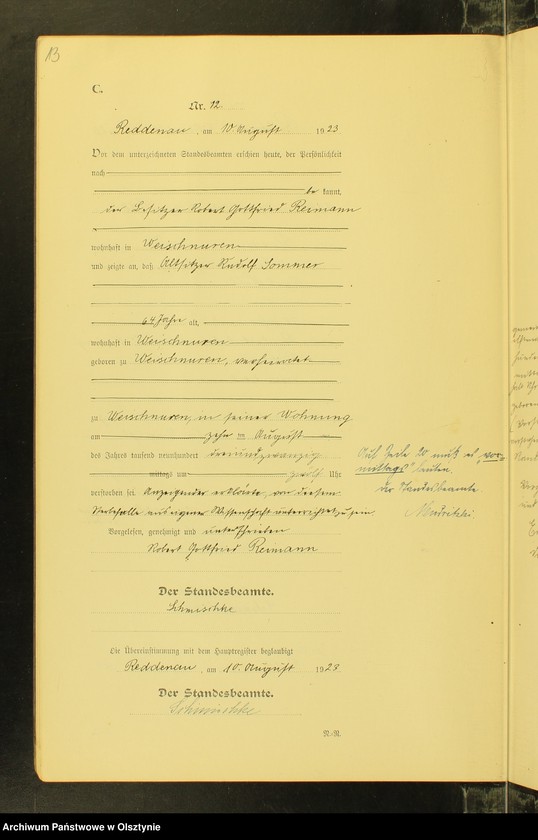 13
C.
Nr. 12.
Reddenau, am 10 August 1923
Vor dem unterzeichneten Standesbeamten erschien heute, der Persönlichkeit
nach
be kannt,
der Besitzer Robert Gottfried Reimann
wohnhaft in Weischnuren
und zeigte an, daß Altsitzer Rudolf Sommer
64 Jahre alt,
wohnhaft in Weischnuren
geboren zu Weischnuren, verheiratet
zu Weischnuren, in seiner Wohnung
am zehn ten August
des Jahres tausend neunhundert dreiundzwanzig
mittags um zwölf Uhr
verstorben sei. Anzeigender erklärte, von diesem
Sterbefalle aus eigener Wissenschaft unterrichtet zu sein.
Vorgelesen, genehmigt und unterschrieben
Robert Gottfried Reimann
Der Standesbeamte.
Schmischke
Die Übereinstimmung mit dem Hauptregister beglaubigt
Reddenau, am 10. August 1923
Der Standesbeamte.
Schmischke
N.-R.
Auf Zeile 20 muß es "vor-
mittags" heißen.
Der Standesbeamte
Archiwum Państwowe w Olsztynie